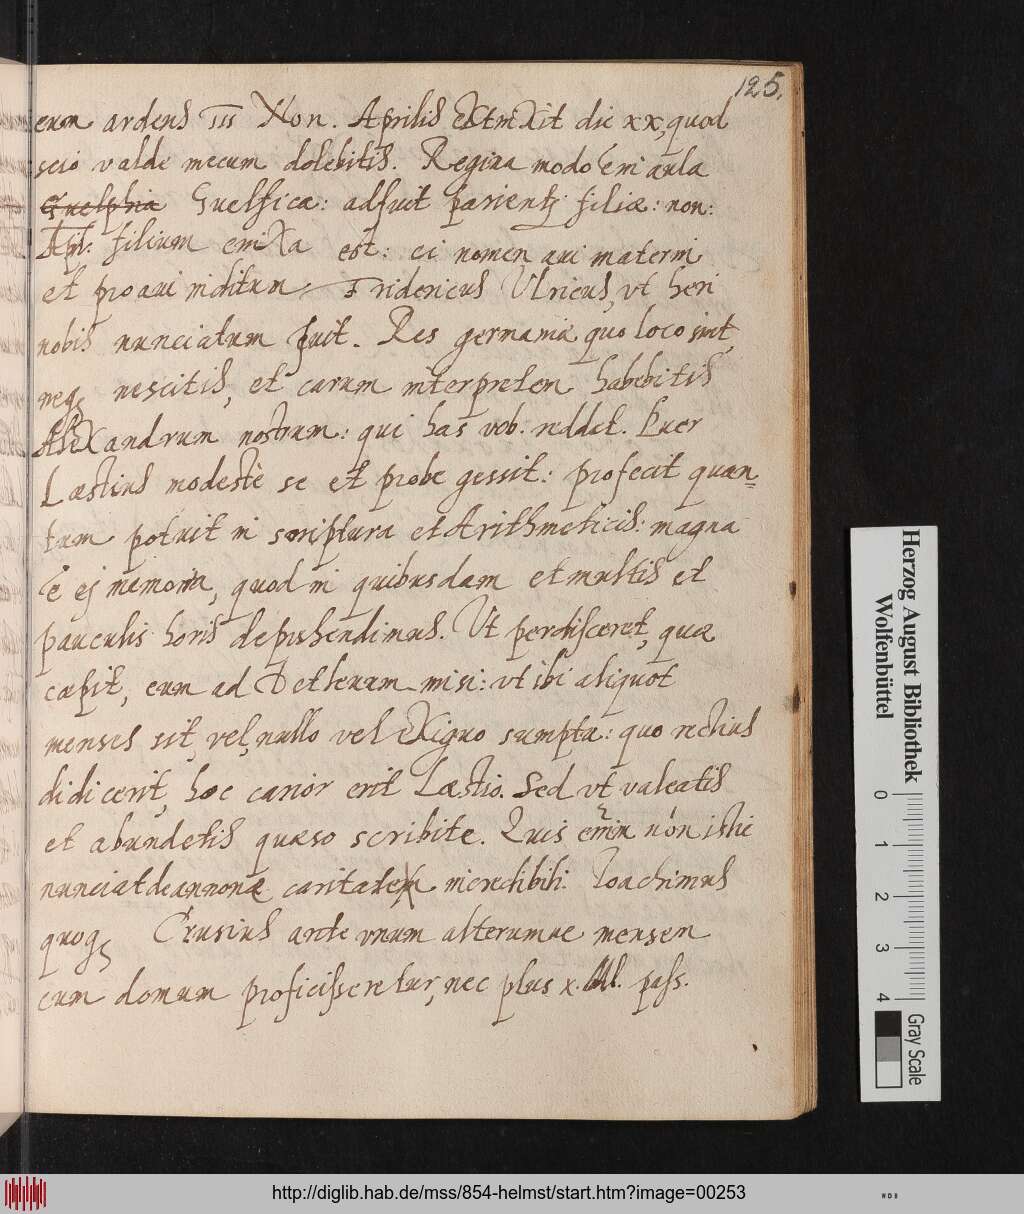 125.
eum ardens III Non. Aprilis extinxit die xx, quod
scio valde mecum dolebitis. Regina modo in aula
Guelphia Guelficæ: adfuit parienti filiæ: non:
Apl: filium enixa est: ei nomen aui materni
et proaui inditum Fridericus Vlricus, vt heri
nobis nunciatum fuit. Res germaniæ quo loco sint,
neq3 nescitis, et carum interpretem habebitis
Alexandrum nostrum: qui has vob. reddet. Puer
Læstius modestè se et probe gessit: profecit quan=
tum potuit in scriptura et Arithmeticis: magna
ē ej memoria, quod in quibusdam et multis et
pauculis horis depręhendimus. Vt perdisceret, quæ
cæpit, eum ad Detleuum misi: vt ibi aliquot
menses sit, vel nullo vel exiguo sumptu: quo rectius
didicerit, hoc carior erit Læstio. Sed vt valeatis
et abundetis quæso scribite. Quis enim non istic
nunciat de annonæ caritatem incredibili. Joachimus
quoq3 Crusius ante vnum alterumue mensem
cum domum proficisceretur, nec plus x. Ml. pass.
Herzog August Bibliothek
Wolfenbüttel
0 1 2 3 4
Gray Scale
http://diglib.hab.de/mss/854-helmst/start.htm?image=00253
WDB